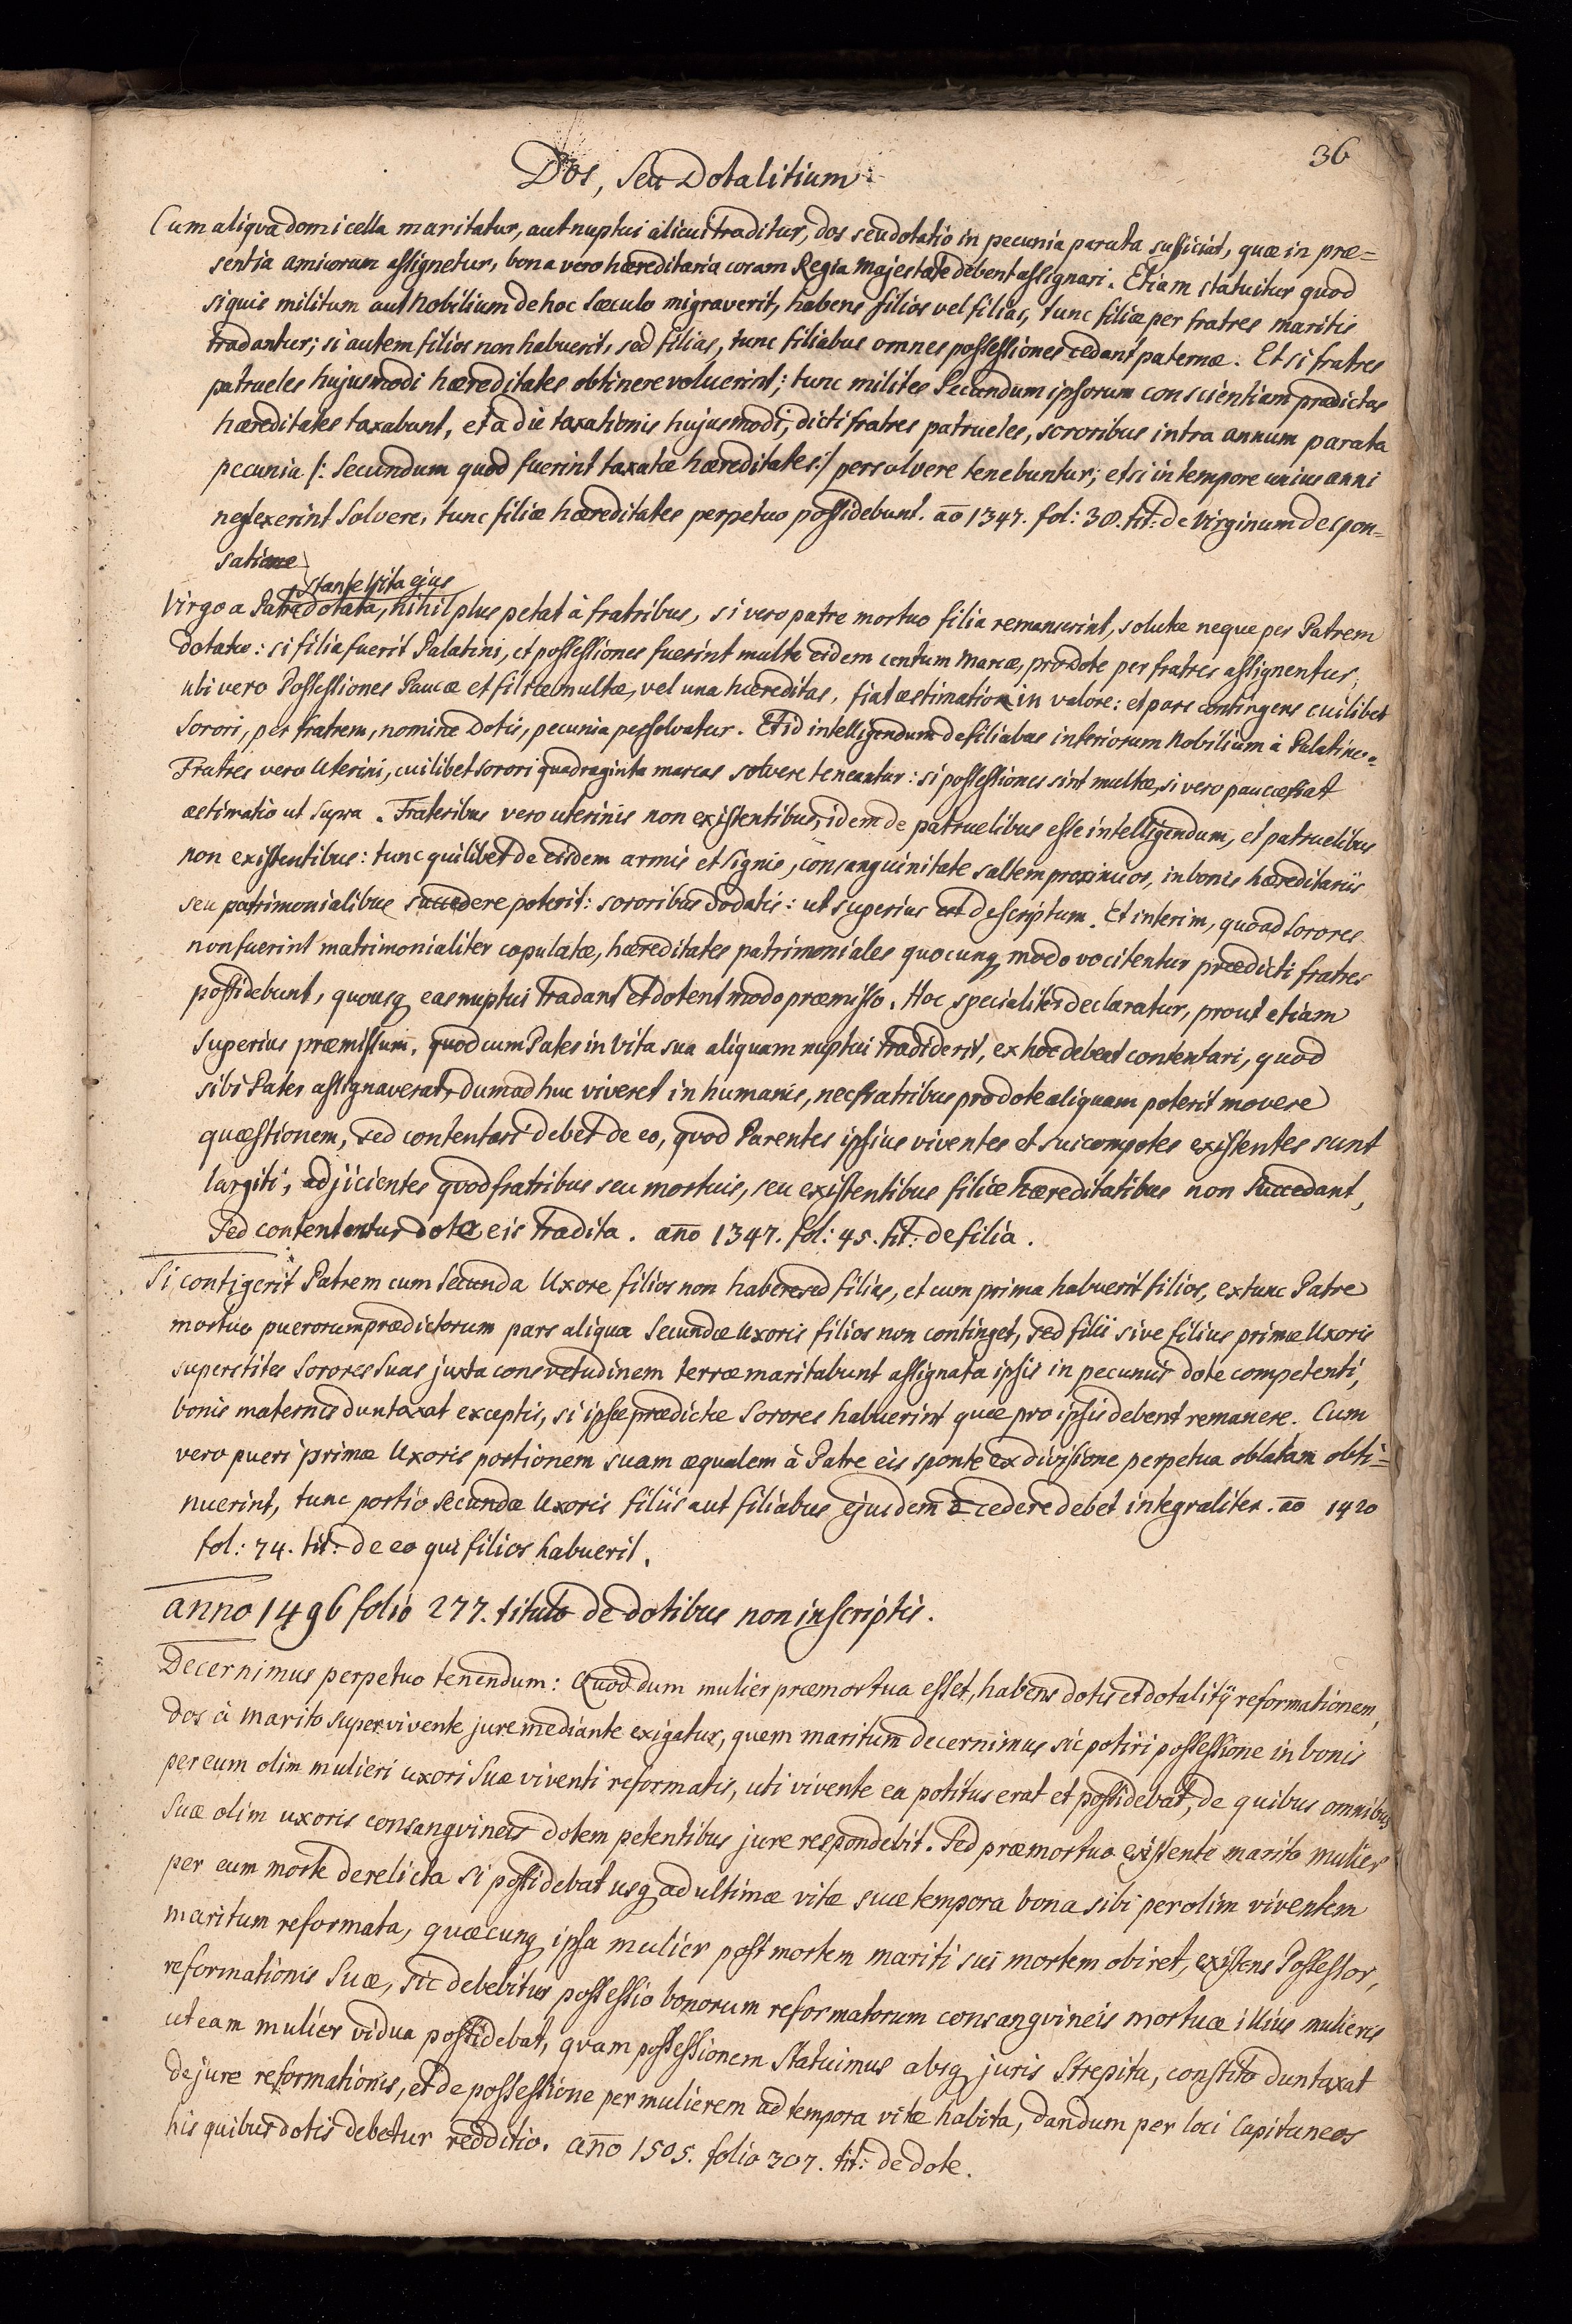 36
Dos, seu Dotalitium.
Cum aliqva domicella maritatur, aut nuptui alicui traditur, dos seu dotatio in pecunia parata sufficiat, quæ in præ=
sentia amicorum assignetur, bona vero hæreditaria coram Regia Majestate debent assignari. Etiam statuitur quod
siquis militum aut Nobilium de hoc sæculo migraverit, habens filios vel filias, tunc filiæ per fratres maritis
tradantur; si autem filios non habuerit, sed filias, tunc filiabus omnes possessiones cedant paternæ. Et si fratres
patrueles hujusmodi hæreditates obtinere voluerint; tunc milites secundum ipsorum conscientiam prædictas
hæreditates taxabunt, et a die taxationis hujusmodi, dicti fratres patrueles, sororibus intra annum parata
pecunia /: secundum quod fuerint taxatæ hæreditates :/ persolvere tenebuntur; et si in tempore unius anni
neglexerint solvere, tunc filiæ hæreditates perpetuo possidebunt. ao 1347. fol: 38. tit: de Virginum despon=
satione
stante vita ejus
Virgo a Patre dotata, nihil plus petat à fratribus, si vero patre mortuo filia remanserint, solutæ neque per Patrem
dotatæ: si filia fuerit Palatini, et possessiones fuerint multæ eidem centum Marcæ, pro dote per fratres assignentur,
ubi vero Possessiones Paucæ et filiæ multæ, vel una hæreditas, fiat æstimatio in valore: et pars contingens cuilibet
Sorori, per fratrem, nomine Dotis, pecunia persolvatur. Et id intelligendum de filiabus inferiorum Nobilium à Palatino.
Fratres vero Uterini, cuilibet sorori quadraginta marcas solvere teneantur: si possessiones sint multæ, si vero paucæ fiat
æstimatio ut supra. Fratribus vero uterinis non existentibus, idem de patruelibus esse intelligendum, et patruelibus
non existentibus: tunc quilibet de eisdem armis et signis, consanguinitate saltem proximior, in bonis hæreditariis
seu patrimonialibus succedere poterit: sororibus dodatis: ut superius est descriptum. Et interim, quoad sorores
non fuerint matrimonialiter copulatæ, hæreditates patrimoniales quocunq modo vocitentur prædicti fratres
possidebunt, quousq eas nuptui tradant et dotent modo præmisso. Hoc specialiter declaratur, prout etiam
superius præmissum, quod cum Pater in vita sua aliquam nuptui tradiderit, ex hoc debeat contentari, quod
sibi Pater assignaverat, dum adhuc viveret in humanis, nec fratribus pro dote aliquam poterit movere
quæstionem, sed contentari debet de eo, quod Parentes ipsius viventes et sui compotes existentes sunt
largiti, adjicientes quod fratribus seu mortuis, seu existentibus filiæ hæreditatibus non succedant,
sed contententur dote eis tradita. año 1347. fol: 45. tit: de filia.
Si contigerit Patrem cum secunda Uxore filios non habere sed filias, et cum prima habuerit filios, ex tunc Patre
mortuo puerorum prædictorum pars aliqua secundæ Uxoris filios non continget, sed filii sive filius primæ Uxoris
superstites sorores suas juxta consvetudinem terræ maritabunt assignata ipsis in pecuniis dote competenti,
bonis maternis duntaxat exceptis, si ipsæ prædictæ sorores habuerint quæ pro ipsis debent remanere. Cum
vero pueri primæ Uxoris portionem suam æqualem à Patre eis sponte ex divisione perpetua oblatam obti=
nuerint, tunc portio secundæ Uxoris filiis aut filiabus ejusdem cedere debet integraliter. ao 1420
fol: 74. tit: de eo qui filios habuerit.
anno 1496 folio 277. titulo de dotibus non inscriptis.
Decernimus perpetuo tenendum: Quod dum mulier præmortua esset, habens dotis et dotalitÿ reformationem,
dos à marito supervivente jure mediante exigatur, quem maritum decernimus sic potiri possessione in bonis
per eum olim mulieri uxori suæ viventi reformatis, uti vivente ea potitus erat et possidebat, de quibus omnibus
suæ olim uxoris consangvineis dotem petentibus jure respondebit. Sed præmortuo existente marito mulier
per eum morte derelicta si possidebat usq ad ultimæ vitæ suæ tempora bona sibi per olim viventem
maritum reformata, quæcunq ipsa mulier post mortem mariti sui mortem obiret, existens Possessor,
reformationis suæ, sic debebitur possessio bonorum reformatorum consangvineis mortuæ illius mulieris
ut eam mulier vidua possidebat, qvam possessionem statuimus absq juris strepitu, constito duntaxat
de jure reformationis, et de possessione per mulierem ad tempora vitæ habita, dandum per loci Capitaneos
his quibus dotis debetur redditio. año 1505. folio 307. tit: de dote.